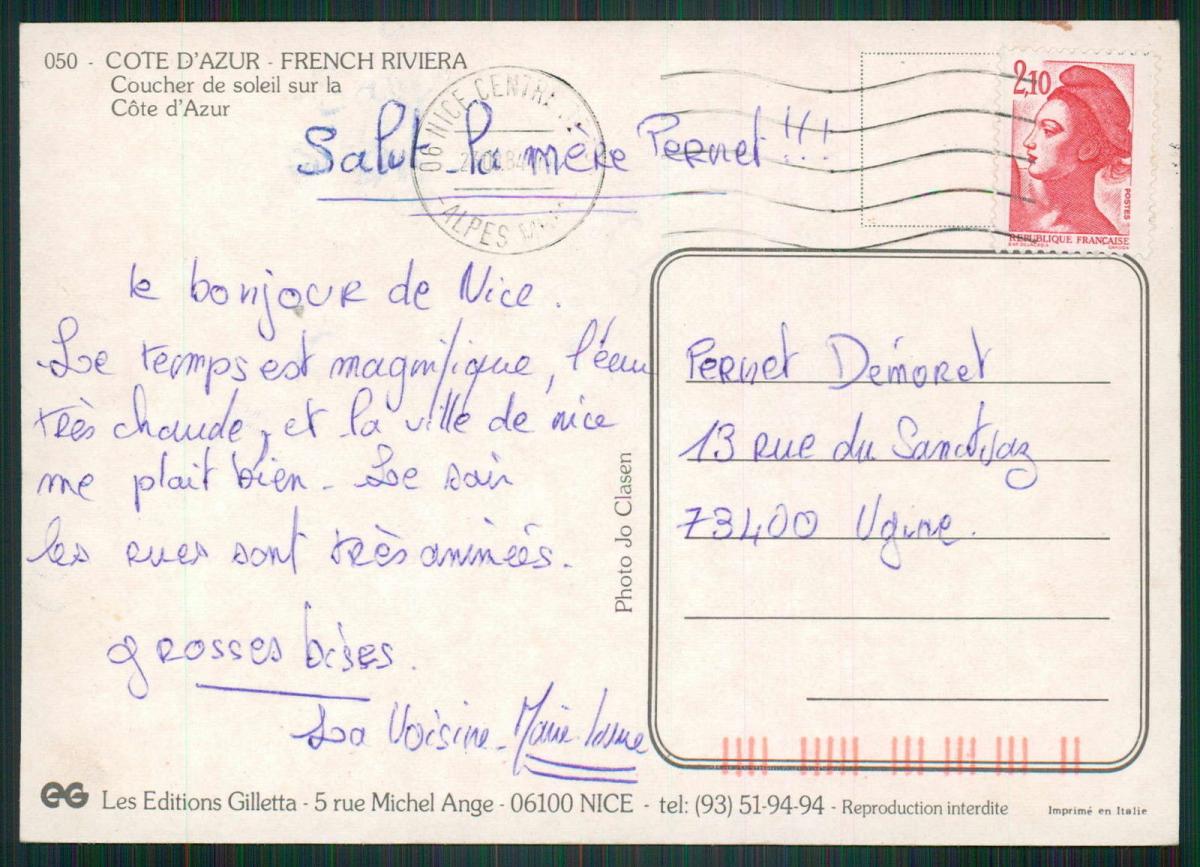 050 - COTE D'AZUR - FRENCH RIVIERA
Coucher de soleil sur la
Côte d'Azur
06 NICE CENTRE
ALPES
2,10
POSTES
REPUBLIQUE FRANÇAISE
Salut la mère Pernet !!!
le bonjour de Nice.
Le temps est magnifique, l'eau
très chaude, et la ville de nice
me plait bien. Le soir
les rues sont très animées.
grosses bises.
La Voisine Marie
Pernet Démoret
13 rue du
73400 Ugine.
Photo Jo Clasen
EG Les Editions Gilletta - 5 rue Michel Ange - 06100 NICE - tel: (93) 51-94-94 - Reproduction interdite
Imprimé en Italie